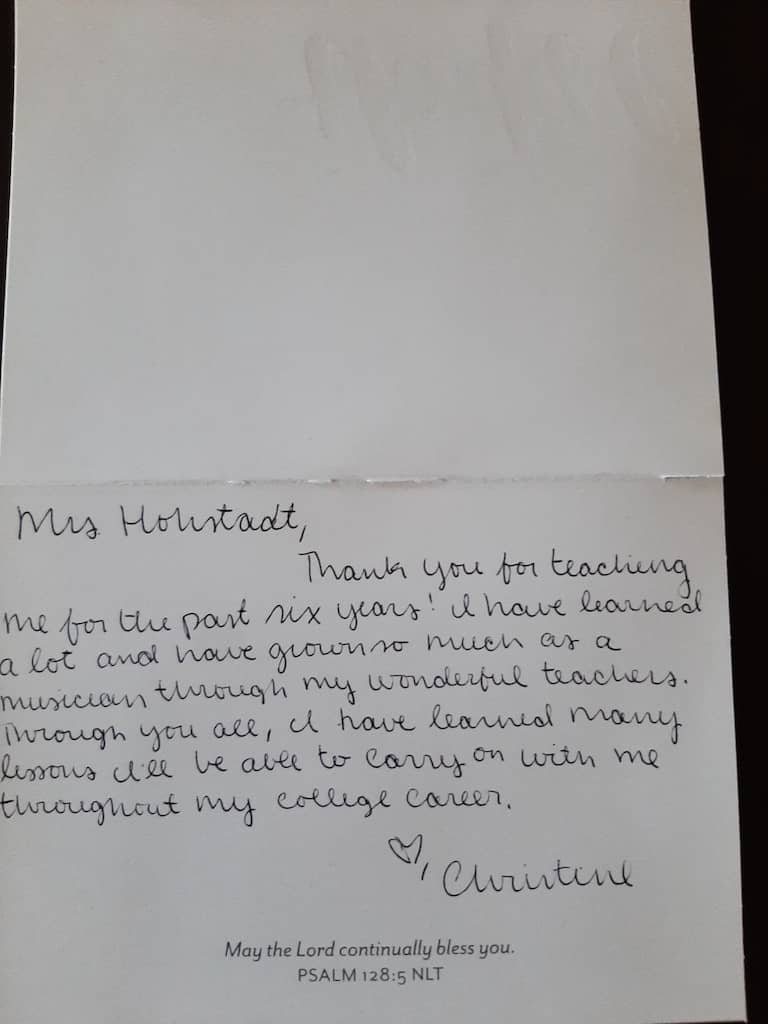 Mrs. Hohstadt,
Thank you for teaching
me for the past six years! I have learned
a lot and have grown so much as a
musician through my wonderful teachers.
Through you all, I have learned many
lessons I'll be able to carry on with me
throughout my college career.
♡, Christine
May the Lord continually bless you.
PSALM 128:5 NLT